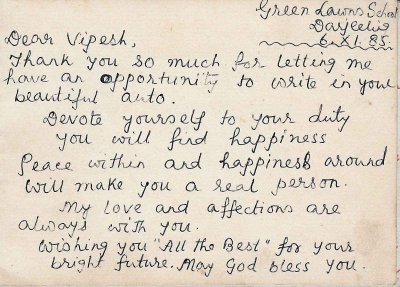 Green Lawns School
Darjeeling
6.XI.85.
Dear Vipesh,
Thank you so much for letting me
have an opportunity to write in your
beautiful auto.
Devote yourself to your duty
you will find happiness
Peace within and happiness around
will make you a real person.
My love and affections are
always with you.
Wishing you "All the Best" for your
bright future. May God bless you.